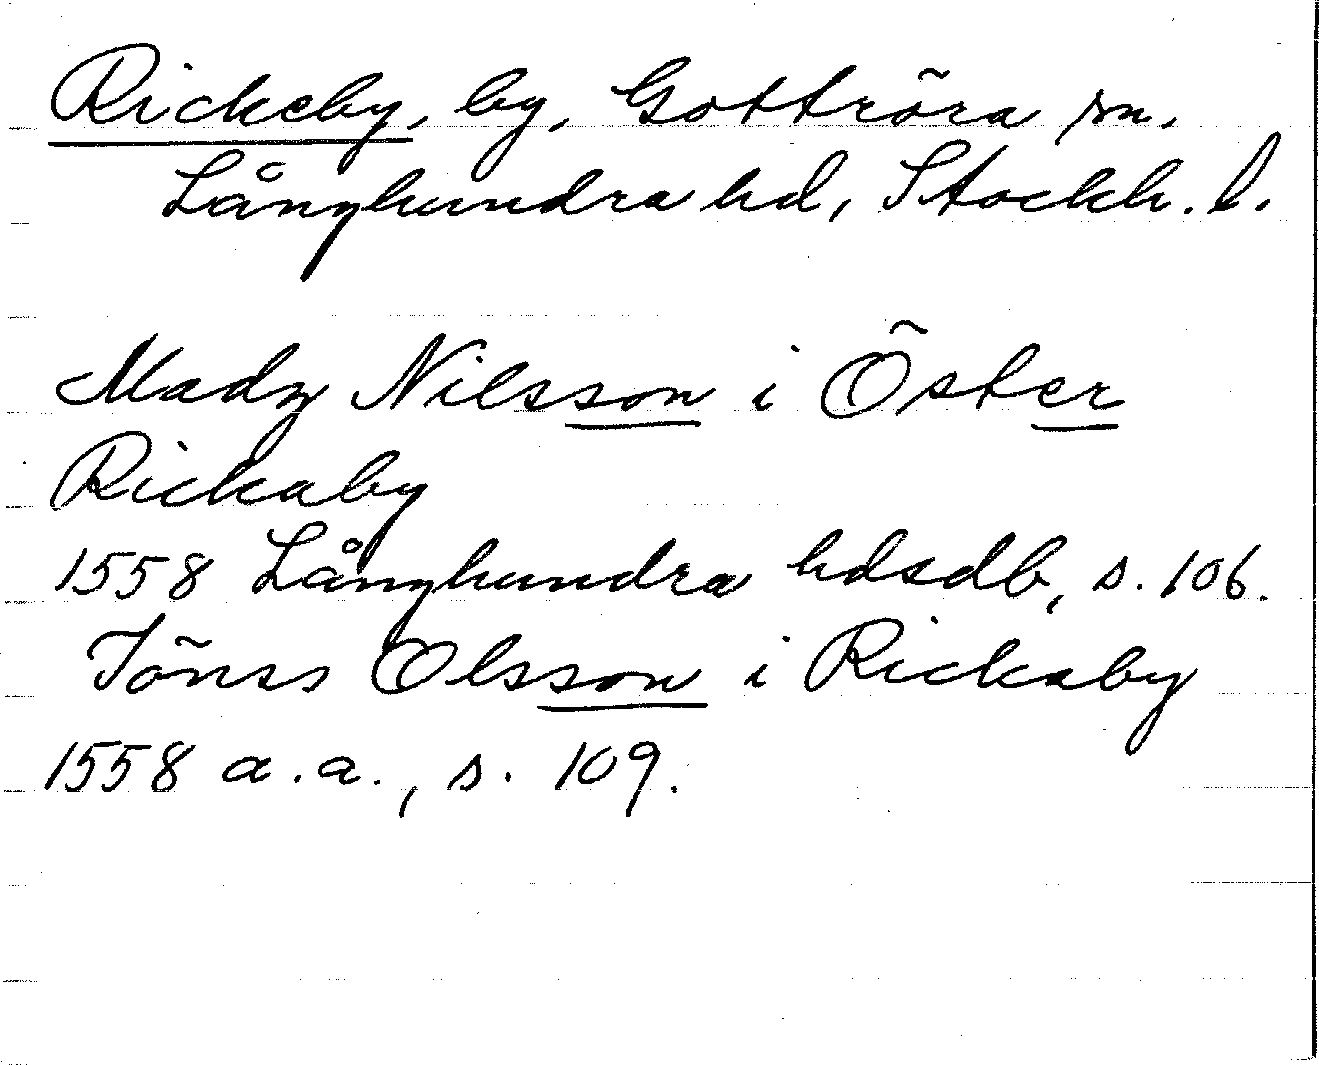 Rickeby, by, Gottröra sn.
Långhundra hd, Stockh. l.
Madz Nilsson i Öster
Rickaby
1558 Långhundra hdsdb, s. 106.
Jönss Olsson i Rickaby
1558 a.a., s. 109.